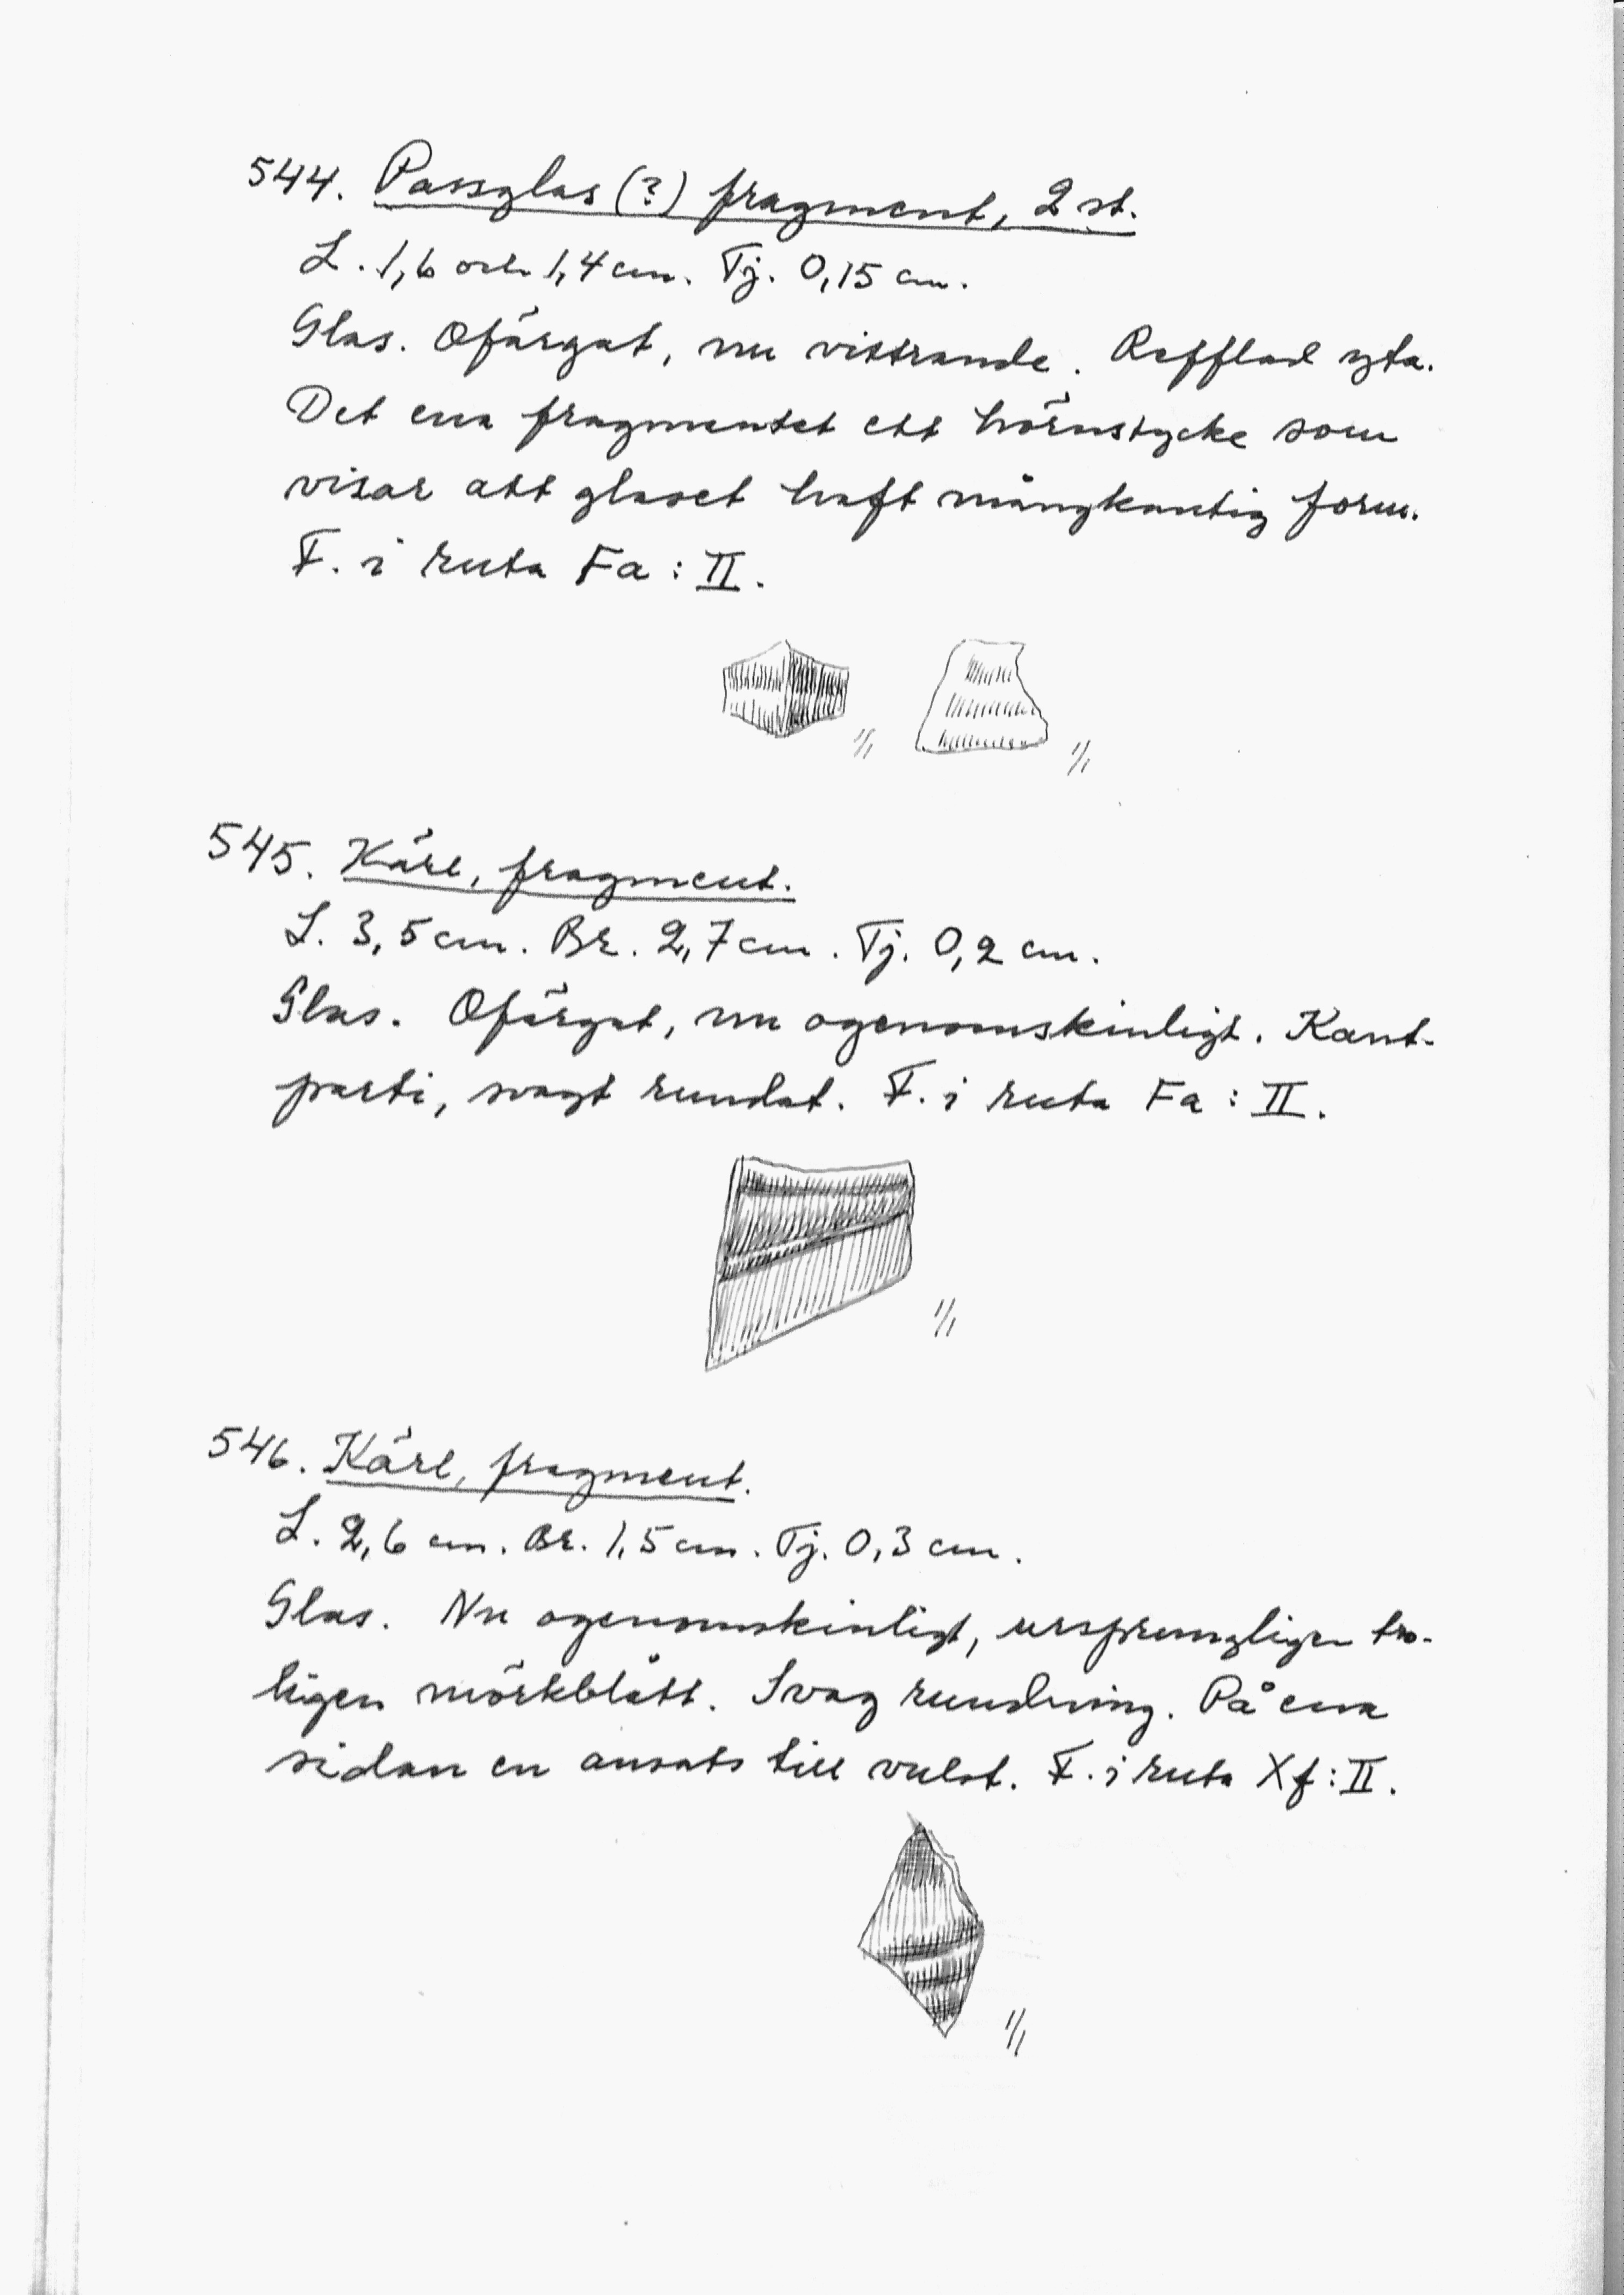 544. Passglas (?) fragment, 2 st.
L. 1,6 och 1,4 cm. Tj. 0,15 cm.
Glas. Ofärgat, nu vittrande. Refflad yta.
Det ena fragmentet ett hörnstycke som
visar att glaset haft mångkantig form.
F. i ruta Fa : II.
1/1 1/1
545. Kärl, fragment.
L. 3,5 cm. Br. 2,7 cm. Tj. 0,2 cm.
Glas. Ofärgat, nu ogenomskinligt. Kant-
parti, svagt rundat. F. i ruta Fa : II.
1/1
546. Kärl, fragment.
L. 2,6 cm. Br. 1,5 cm. Tj. 0,3 cm.
Glas. Nu ogenomskinligt, ursprungligen tro-
ligen mörkblått. Svag rundning. På ena
sidan en ansats till vulst. F. i ruta Xf : II.
1/1